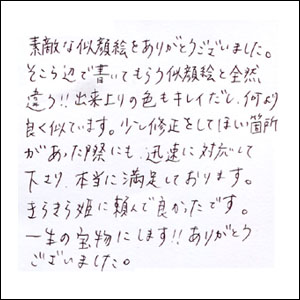 素敵な似顔絵をありがとうございました。
そこら辺で書いてもらう似顔絵と全然
違う!!出来上りの色もキレイだし、何より
良く似ています。少し修正をしてほしい箇所
があった際にも、迅速に対応して
下さり、本当に満足しております。
きらきら姫に頼んで良かったです。
一生の宝物にします!!ありがとう
ございました。